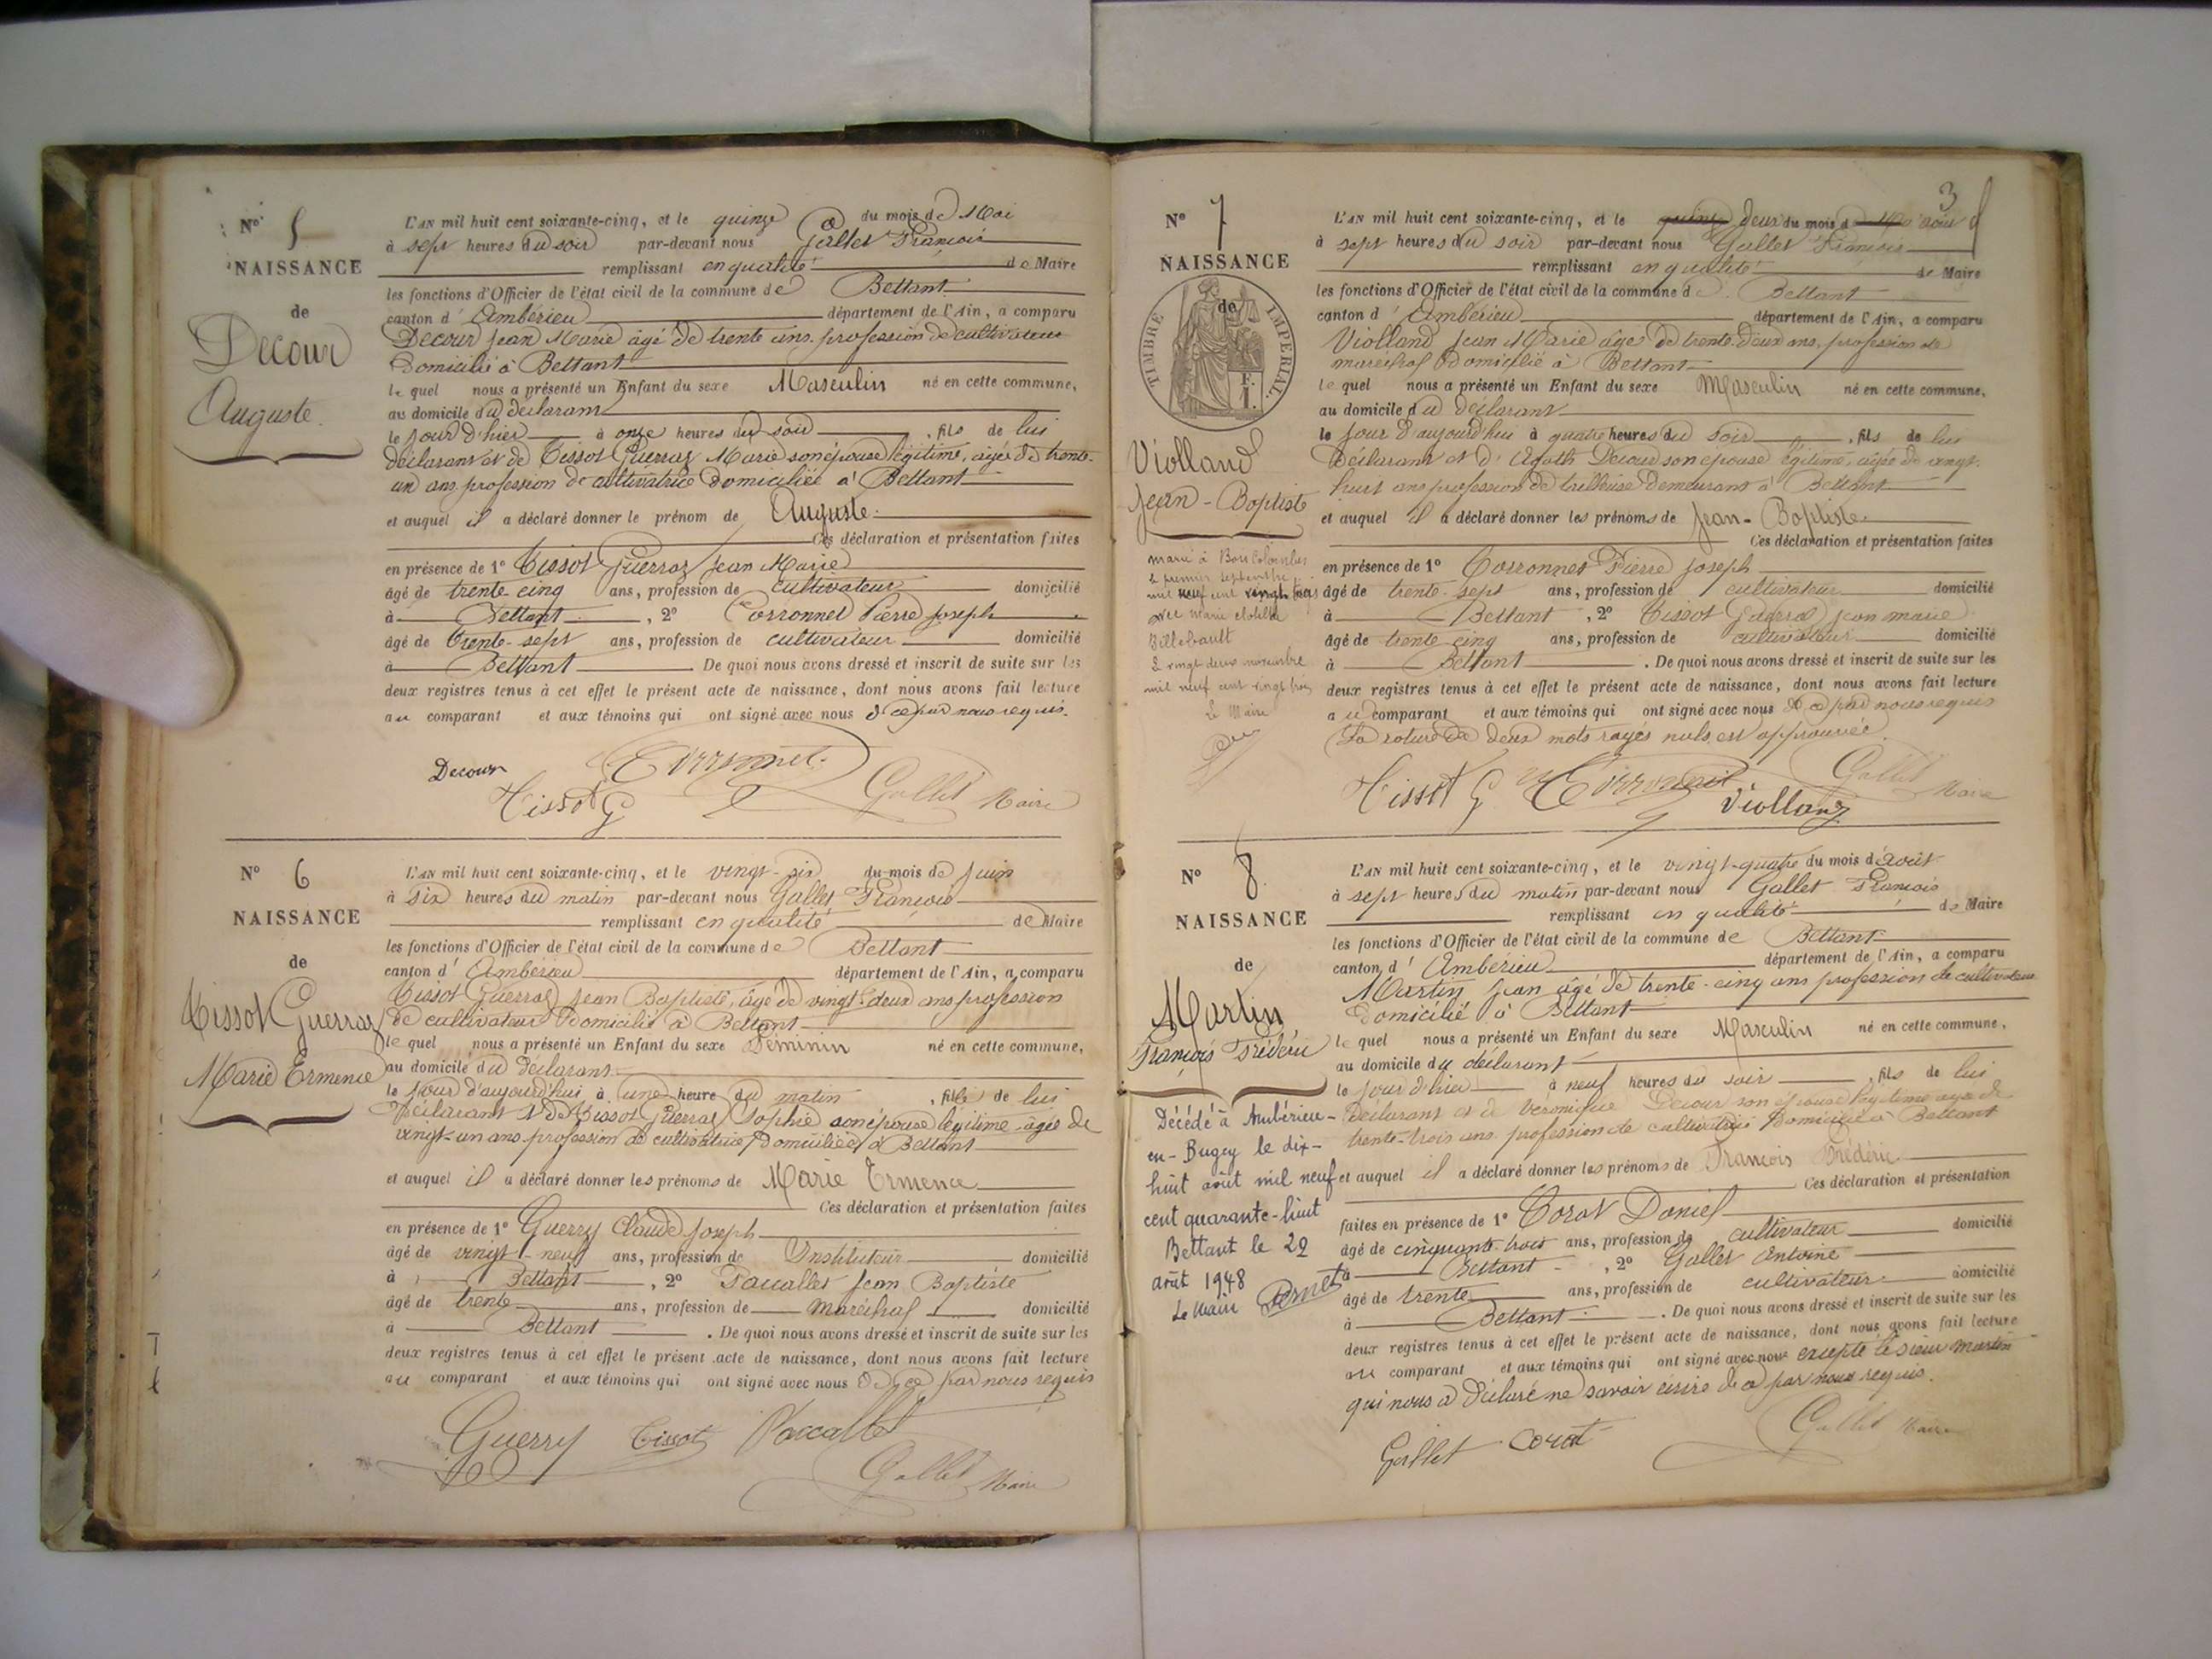 N° 5
NAISSANCE
de
Decour
Auguste.
L'AN mil huit cent soixante-cinq, et le quinze du mois de Mai
à sept heures du soir par-devant nous Gallet François
remplissant en qualité de Maire
les fonctions d'Officier de l'état civil de la commune de Bettant
canton d'Ambérieu département de l'Ain, a comparu
Decour Jean Marie âgé de trente ans, profession de cultivateur
Domicilié à Bettant
le quel nous a présenté un Enfant du sexe Masculin né en cette commune,
au domicile du déclarant
le jour d'hier à onze heures du soir, fils de lui
déclarant et de Tissot Guerraz Marie son épouse légitime, agée de trente-
un ans, profession de cultivatrice domiciliée à Bettant
et auquel il a déclaré donner le prénom de Auguste.
Ces déclaration et présentation faites
en présence de 1° Tissot Guerraz Jean Marie
âgé de trente-cinq ans, profession de cultivateur domicilié
à Bettant, 2° Corronnet Pierre Joseph
âgé de trente-sept ans, profession de cultivateur domicilié
à Bettant. De quoi nous avons dressé et inscrit de suite sur les
deux registres tenus à cet effet le présent acte de naissance, dont nous avons fait lecture
au comparant et aux témoins qui ont signé avec nous de ce par nous requis.
Decour
Tissot G
Gallet Maire
N° 6
NAISSANCE
de
Tissot Guerraz
Marie Ermence
L'AN mil huit cent soixante-cinq, et le vingt-six du mois de Juin
à six heures du matin par-devant nous Gallet François
remplissant en qualité de Maire
les fonctions d'Officier de l'état civil de la commune de Bettant
canton d'Ambérieu département de l'Ain, a comparu
Tissot Guerraz Jean Baptiste, âgé de vingt-deux ans profession
de cultivateur domicilié à Bettant
le quel nous a présenté un Enfant du sexe Féminin né en cette commune,
au domicile du déclarant
le jour d'aujourd'hui à une heure du matin, fille de lui
Déclarant et de Tissot Guerraz Sophie son épouse légitime agée de
vingt-un ans profession de cultivatrice, Domiciliée à Bettant
et auquel il a déclaré donner les prénoms de Marie Ermence
Ces déclaration et présentation faites
en présence de 1° Guerry Claude Joseph
âgé de vingt-neuf ans, profession de Instituteur domicilié
à Bettant, 2° Paccallet Jean Baptiste
âgé de trente ans, profession de maréchal domicilié
à Bettant. De quoi nous avons dressé et inscrit de suite sur les
deux registres tenus à cet effet le présent acte de naissance, dont nous avons fait lecture
au comparant et aux témoins qui ont signé avec nous de ce par nous requis
Guerry Tissot Paccallet
Gallet Maire
3
N° 7
NAISSANCE
de
TIMBRE IMPERIAL
F.
1.
Violland
Jean-Baptiste
marié à Bois Colombes
le premier septembre
mil neuf cent vingt trois
avec Marie Clotilde
Billebault
le vingt deux novembre
mil neuf cent vingt trois
Le Maire
L'AN mil huit cent soixante-cinq, et le quinze deux du mois d Mai août
à sept heures du soir par-devant nous Gallet François
remplissant en qualité de Maire
les fonctions d'Officier de l'état civil de la commune de Bettant
canton d'Ambérieu département de l'Ain, a comparu
Violland Jean Marie âgé de trente-deux ans, profession de
maréchal domicilié à Bettant
le quel nous a présenté un Enfant du sexe Masculin né en cette commune,
au domicile du déclarant
le jour d'aujourd'hui à quatre heures du soir, fils de lui
Déclarant et d'Agath Decour son epouse légitime, agée de vingt-
huit ans profession de tailleuse demeurant à Bettant
et auquel il a déclaré donner les prénoms de Jean-Baptiste.
Ces déclaration et présentation faites
en présence de 1° Corronnet Pierre Joseph
âgé de trente-sept ans, profession de cultivateur domicilié
à Bettant, 2° Tissot Guerraz Jean marie
âgé de trente cinq ans, profession de cultivateur domicilié
à Bettant. De quoi nous avons dressé et inscrit de suite sur les
deux registres tenus à cet effet le présent acte de naissance, dont nous avons fait lecture
au comparant et aux témoins qui ont signé avec nous de ce par nous requis
La roture de deux mots rayés nuls est approuvée.
Tissot G
Gallet Maire
Violland
N° 8
NAISSANCE
de
Martin
François Frédéric
Décédé à Ambérieu-
en-Bugey le dix-
huit août mil neuf
cent quarante-huit
Bettant le 29
août 1948
Le Maire
L'AN mil huit cent soixante-cinq, et le vingt-quatre du mois d'août
à sept heures du matin par-devant nous Gallet François
remplissant en qualité de Maire
les fonctions d'Officier de l'état civil de la commune de Bettant
canton d'Ambérieu département de l'Ain, a comparu
Martin Jean âgé de trente-cinq ans profession de cultivateur
Domicilié à Bettant
le quel nous a présenté un Enfant du sexe Masculin né en cette commune,
au domicile du déclarant
le jour d'hier à neuf heures du soir, fils de lui
Déclarant et de Véronique Decour son épouse légitime agée de
trente-trois ans profession de cultivatrice Domiciliée à Bettant
et auquel il a déclaré donner les prénoms de François Frédéric
Ces déclaration et présentation
faites en présence de 1° Corat Daniel
âgé de cinquante-trois ans, profession de cultivateur domicilié
à Bettant, 2° Gallet Antoine
âgé de trente ans, profession de cultivateur domicilié
à Bettant. De quoi nous avons dressé et inscrit de suite sur les
deux registres tenus à cet effet le présent acte de naissance, dont nous avons fait lecture
au comparant et aux témoins qui ont signé avec nous excepté le sieur Martin
qui nous a déclaré ne savoir écrire de ce par nous requis.
Gallet Corat
Gallet Maire